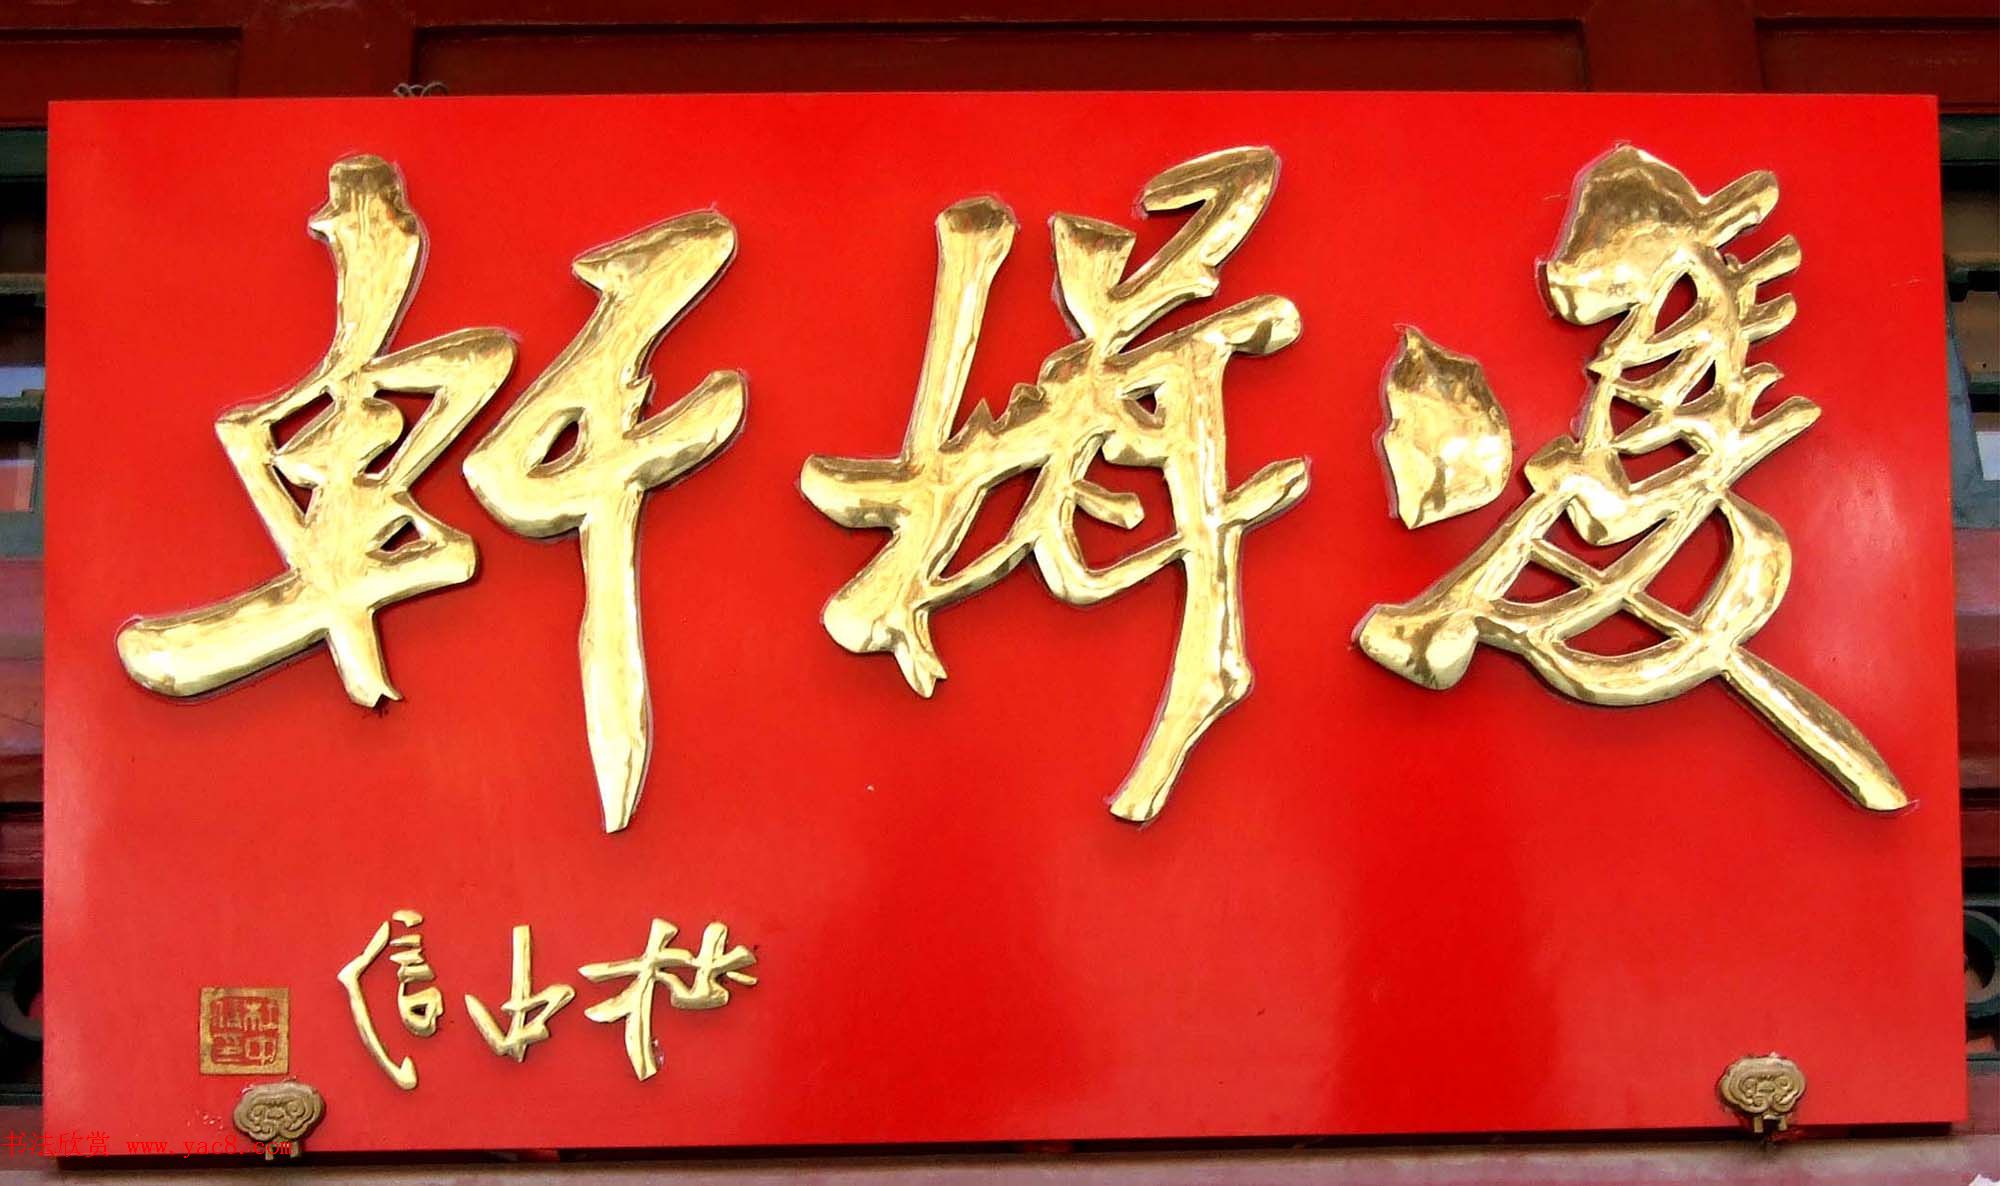 雙楫軒
杜中信
杜中信印
书法欣赏 www.yac8.com